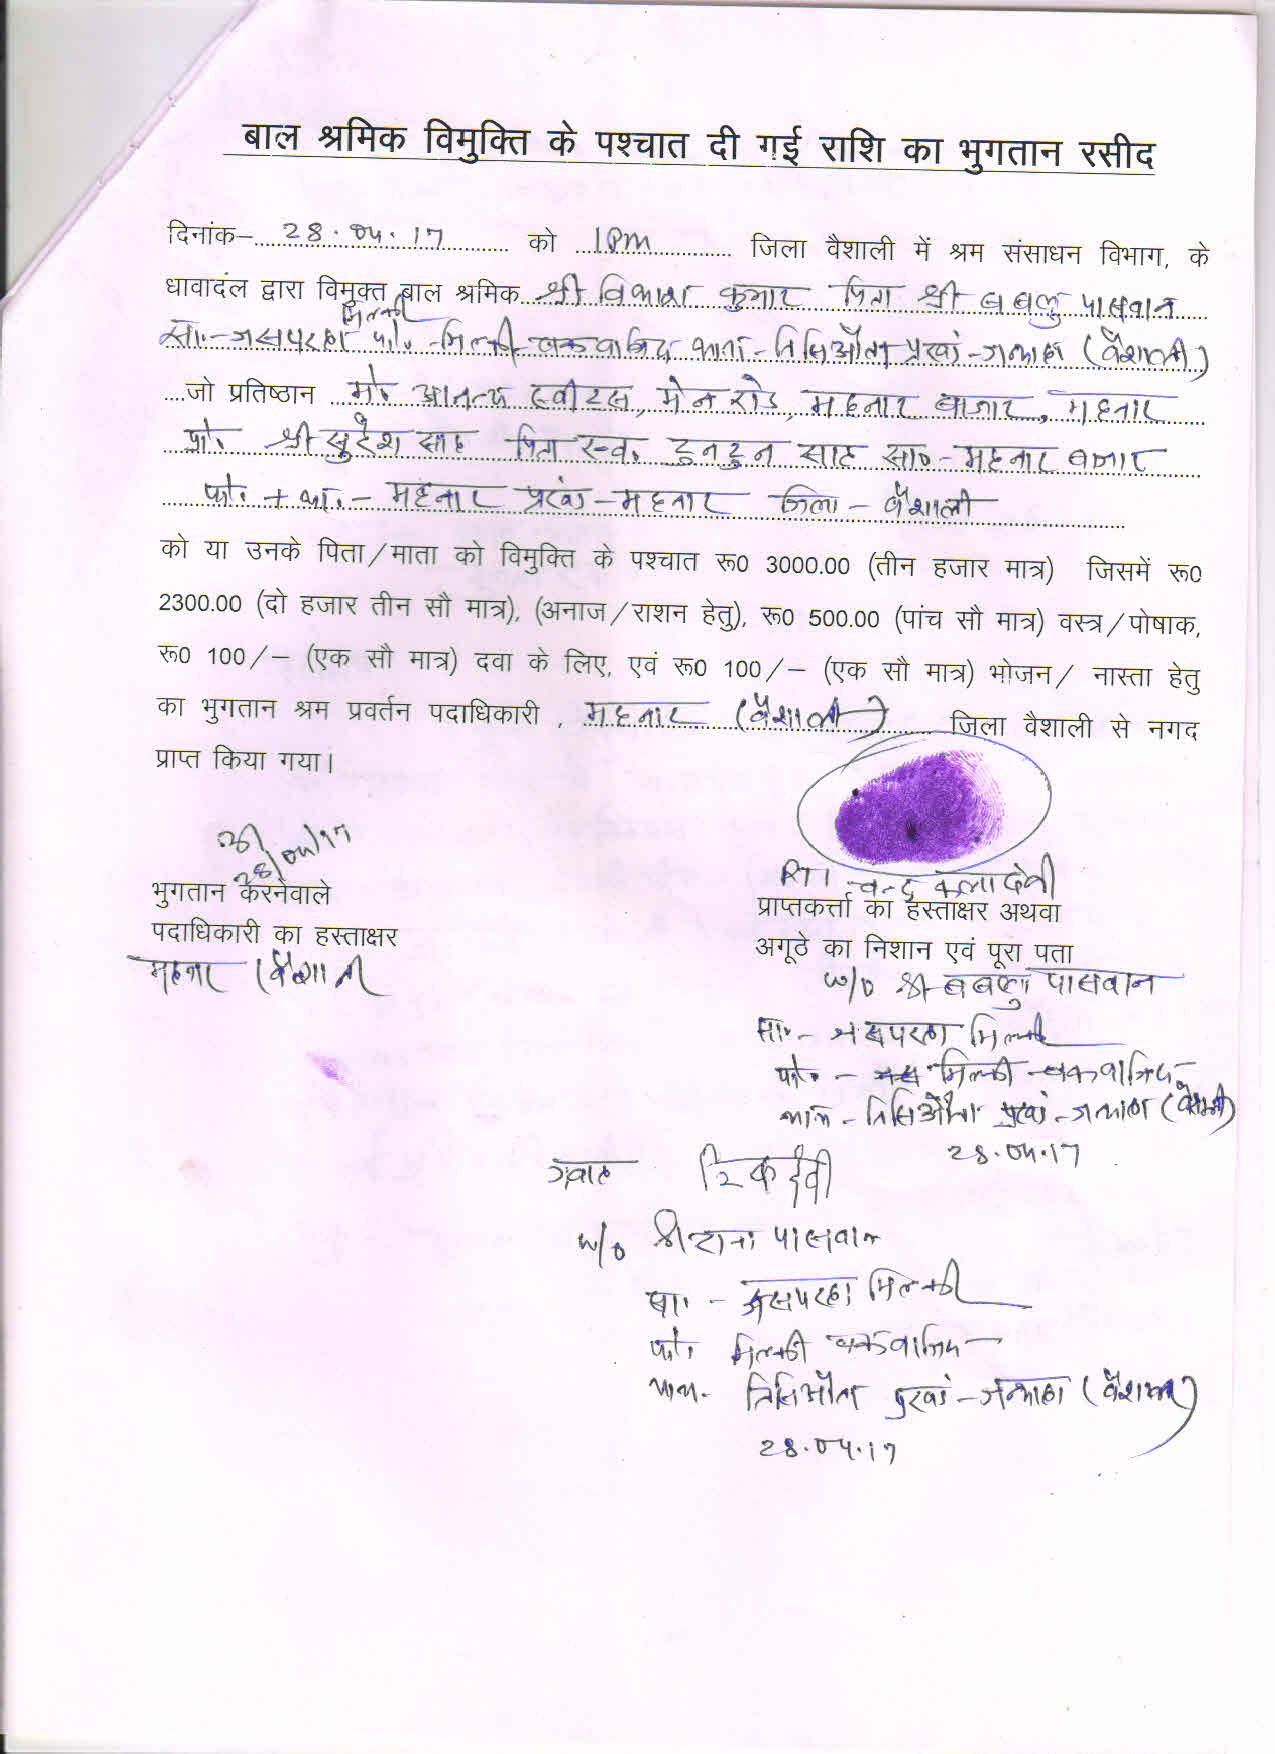 बाल श्रमिक विमुक्ति के पश्चात दी गई राशि का भुगतान रसीद
दिनांक– 28.04.17 को 1PM जिला वैशाली में श्रम संसाधन विभाग, के
धावादंल द्वारा विमुक्त बाल श्रमिक श्री विकाश कुमार पिता श्री बबलु पासवान
मिल्की
सा॰-जसपरहा पो॰-मिल्की चकवाजिद थाना-तिसिऔता प्रखं-जन्दाहा (वैशाली)
जो प्रतिष्ठान मे॰ आनन्द स्वीट्स, मेन रोड, महनार बाजार, महनार
प्रो॰ श्री सुरेश साह पिता स्व॰ टुनटुन साह सा॰-महनार बाजार
पो॰+था॰-महनार प्रखं-महनार जिला-वैशाली
को या उनके पिता/माता को विमुक्ति के पश्चात रू0 3000.00 (तीन हजार मात्र) जिसमें रू0
2300.00 (दो हजार तीन सौ मात्र), (अनाज/राशन हेतु), रू0 500.00 (पांच सौ मात्र) वस्त्र/पोषाक,
रू0 100/– (एक सौ मात्र) दवा के लिए, एवं रू0 100/– (एक सौ मात्र) भोजन/ नास्ता हेतु
का भुगतान श्रम प्रवर्तन पदाधिकारी , महनार (वैशाली) जिला वैशाली से नगद
प्राप्त किया गया।
28/04/17
भुगतान करनेवाले
पदाधिकारी का हस्ताक्षर
महनार (वैशाली)
RTI चन्द्रकला देवी
प्राप्तकर्त्ता का हस्ताक्षर अथवा
अगूठे का निशान एवं पूरा पता
W/o श्री बबलु पासवान
सा॰- जसपरहा मिल्की
पो॰ - मिल्की चकवाजिद
थाना - तिसिऔता प्रखं-जन्दाहा (वैशाली)
28.04.17
गवाह
W/o श्री पासवान
सा॰ - जसपरहा मिल्की
पो॰ मिल्की चकवाजिद
थाना- तिसिऔता प्रखं-जन्दाहा (वैशाली)
28.04.17